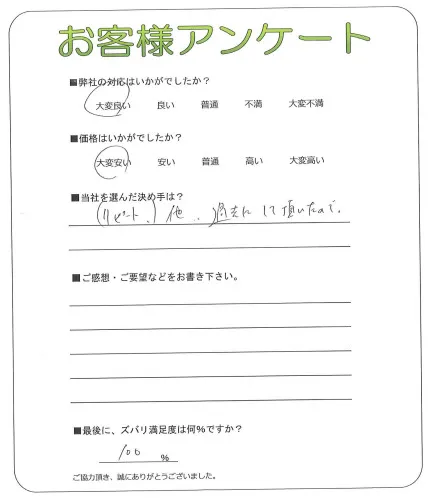 お客様アンケート
■弊社の対応はいかがでしたか？
大変良い 良い 普通 不満 大変不満
■価格はいかがでしたか？
大変安い 安い 普通 高い 大変高い
■当社を選んだ決め手は？
(リピート、) 他、過去にして頂いたので。
■ご感想・ご要望などをお書き下さい。
■最後に、ズバリ満足度は何%ですか？
100 %
ご協力頂き、誠にありがとうございました。